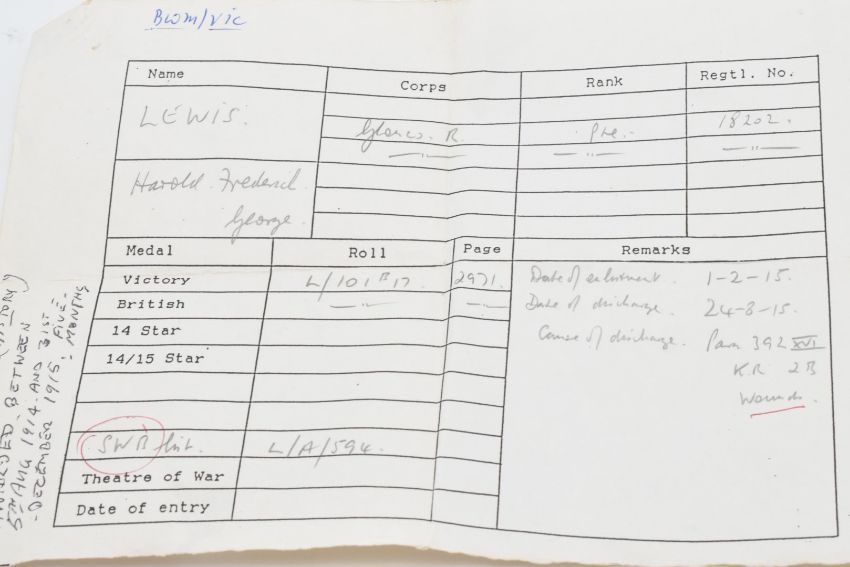 BWM/VIC
Name Corps Rank Regtl. No.
LEWIS. Glouc. R. Pte. 18202.
—"— —"— —"—
Harold Frederick
George
Medal Roll Page Remarks
Victory L/101 B 17 2971. Date of enlistment. 1-2-15.
British —"— —"— Date of discharge. 24-8-15.
14 Star Cause of discharge. Para 392 XVI
14/15 Star K.R 2B
Wounds.
SWB list. L/A/594.
Theatre of War
Date of entry
BETWEEN
5TH AUG 1914. AND 31ST
-DECEMBER 1915, FIVE-
MONTHS